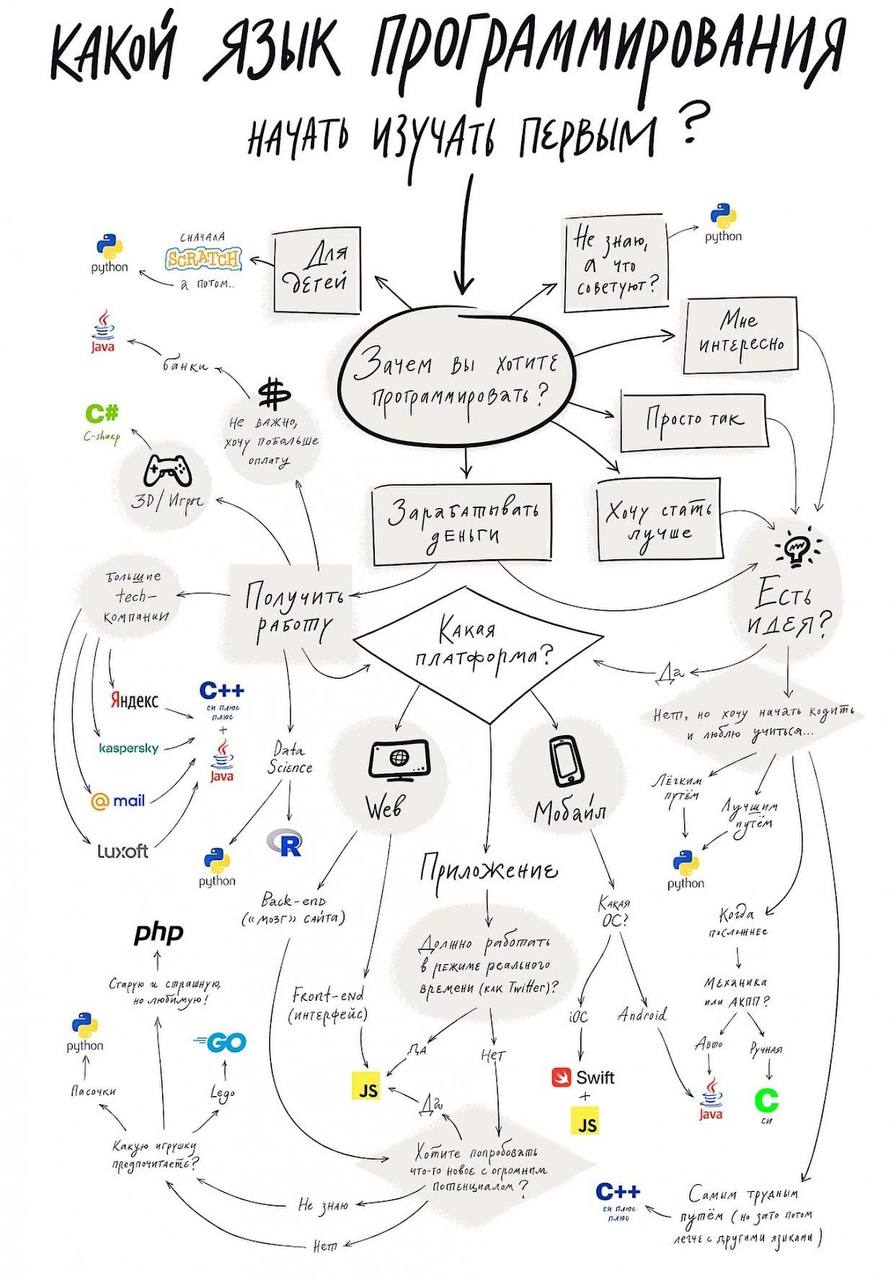 Какой язык программирования
начать изучать первым?
Для
детей
сначала
SCRATCH
а потом..
python
Не знаю,
а что
советуют?
python
Зачем вы хотите
программировать?
Мне
интересно
Просто так
Хочу стать
лучше
Зарабатывать
деньги
Есть
идея?
Java
банки
$
Не важно,
хочу побольше
оплату
C#
C-sharp
3D/Игры
Большие
tech-
компании
Получить
работу
Какая
платформа?
Да
Нет, но хочу начать кодить
и люблю учиться...
Яндекс
kaspersky
@mail
Luxoft
C++
си плюс
плюс
+
Java
Data
Science
python
R
Web
Мобайл
Лёгким
путём
Лучшим
путём
python
Приложение
Back-end
("мозг" сайта)
Front-end
(интерфейс)
Должно работать
в режиме реального
времени (как Twitter)?
Да
Нет
JS
Да
Какая
ОС?
iOC
Android
Swift
+
JS
Когда
посложнее
Механика
или АКПП?
Авто
Ручная
Java
C
си
php
Старую и страшную,
но любимую!
python
GO
Пасочки
Lego
Какую игрушку
предпочитаете?
Хотите попробовать
что-то новое с огромным
потенциалом?
Не знаю
Нет
C++
си плюс
плюс
Самим трудным
путём (но зато потом
легче с другими языками)